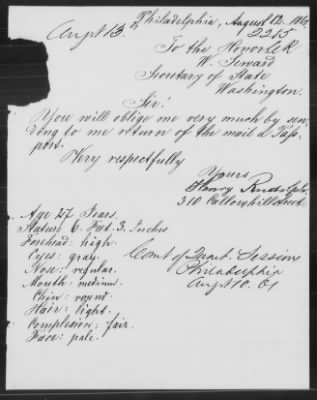 Philadelphia, August 12. 186
Augt 13.
2255
To the Honorble
W. Seward
Secretary of State
Washington.
Sir!
You will oblige me very much by sen-
ding to me return of the mail a Pass-
port.
Very respectfully
Yours
Henry Rudolph,
310 Callowhill Street
Age 27 Years.
Stature 6. Feet. 3. Inches
Forehead: high.
Eyes: gray.
Nose: regular.
Mouth: medium.
Chin: round.
Hair: light.
Complexion: fair.
Face: pale.
Court of Quart. Session
Philadelphia
Augt 10. 61